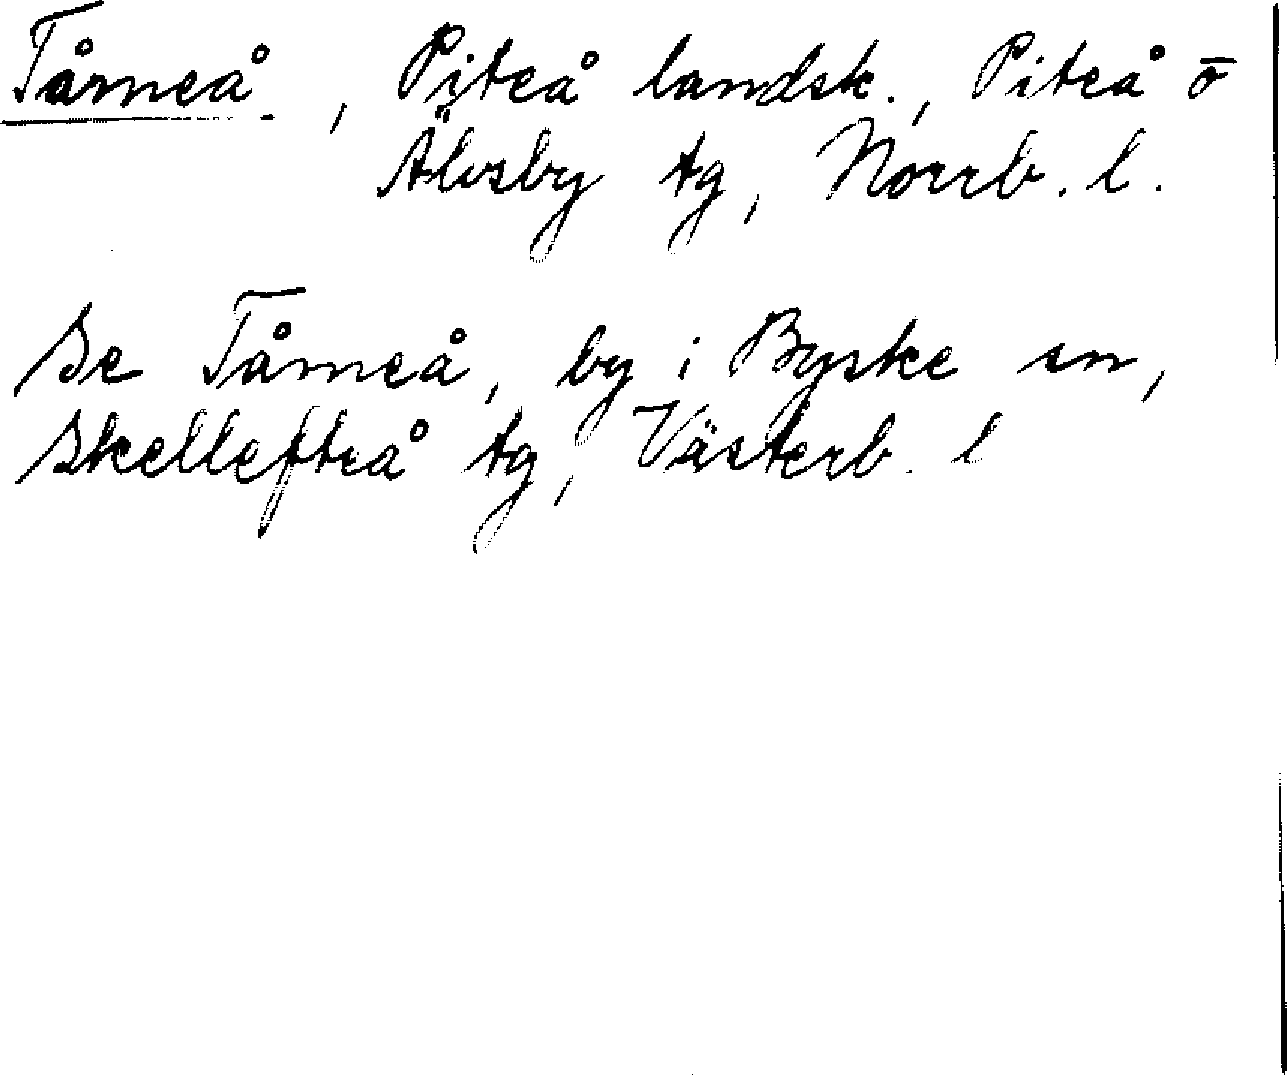 Tåmeå, Piteå landsk., Piteå o
Älvsby tg, Norrb. l.
Se Tåmeå, by i Byske sn,
Skellefteå tg, Västerb. l